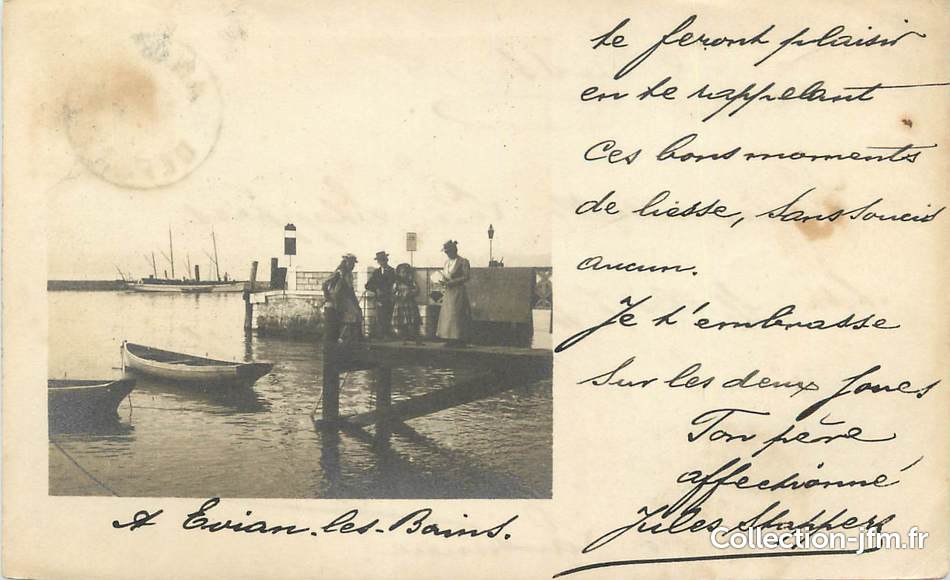 te feront plaisir
en te rappelant
ces bons moments
de liesse, sans soucis
aucun.
Je t'embrasse
sur les deux joues
Ton père
affectionné
Jules
A Evian-les-Bains.
Collection-jfm.fr